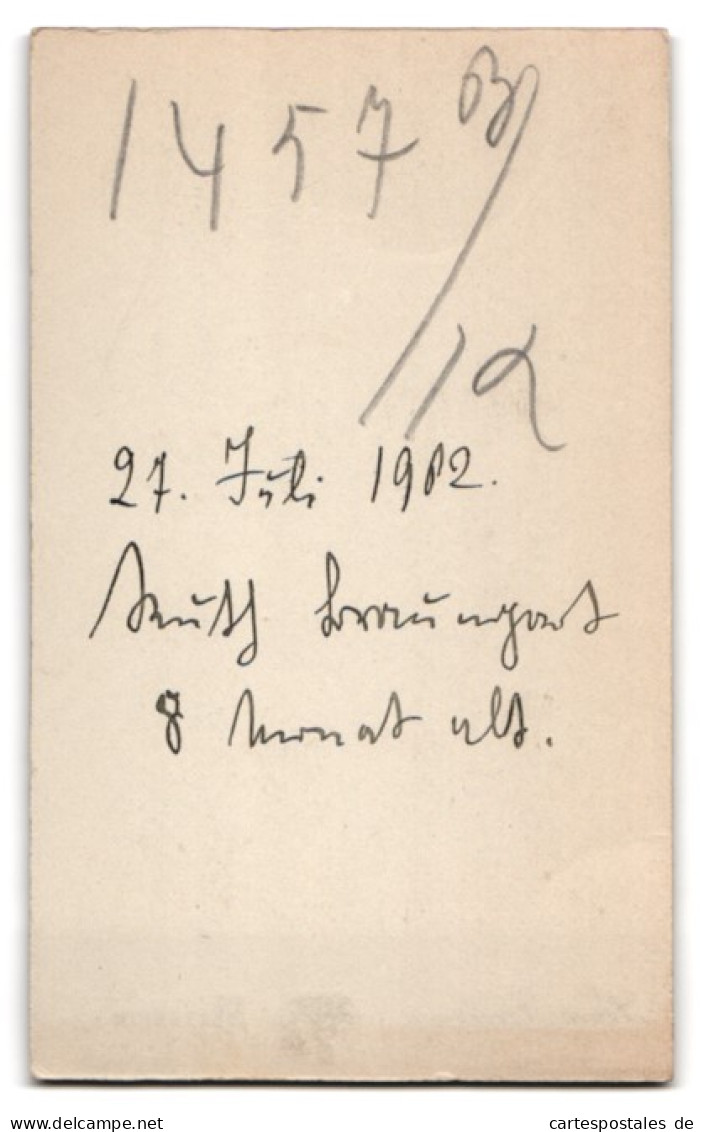 1457 B/12
27. Juli 1902.
Ruth Braungart
8 Monat alt.
www.delcampe.net
cartespostales de